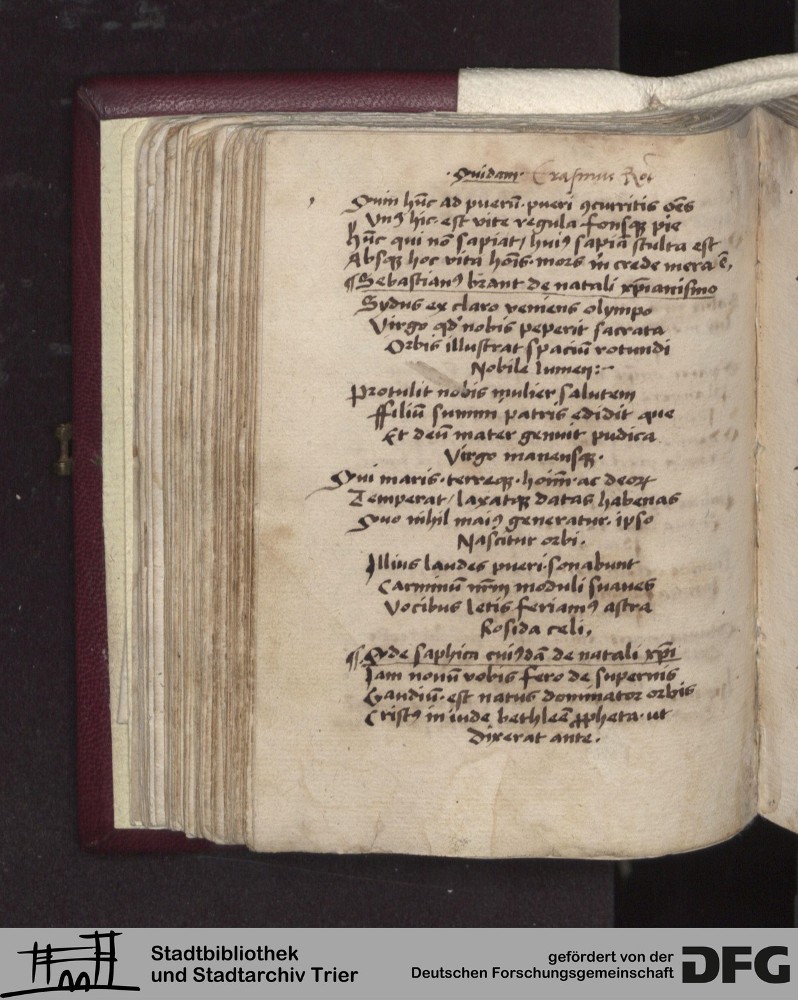 ·Quidam· Erasmus Ro᷒t
Quin hūc ad puerū· pueri ꝯcurritis oēs
Vnꝰ hic est vite regula fonsqꝫ pie
Hūc qui nō sapiat/ huiꝰ sapiā stulta est
Absqꝫ hoc vita hoīs mors m̄ crede mera ē,
¶Sebastianꝰ brant de natali xp̄ianismo
Sydus ex claro veniens olympo
Virgo qd' nobis peperit sacrata
Orbis illustrat spaciū rotundi
Nobile lumen:~
Protulit nobis mulier salutem
ffiliū summi patris edidit que
Et deū mater genuit pudica
Virgo manensqꝫ.
Qui maris· terreqꝫ· hoim̄· ac deoꝝ
Temperat/ laxatqꝫ datas habenas
Quo nihil maiꝰ generatur. ipso
Nascitur orbi.
Illius laudes pueri· sonabunt
Carminū nr̄m moduli suaues
Vocibus letis feriamꝰ astra
Rosida celi,
¶Ode saphica cuiꝰdā de natali xp̄i
Iam nouū vobis fero de supernis
Gaudiū· est natus dominator orbis
Cristꝰ in iude bethleē ꝓpheta· ut
Dixerat ante.
Stadtbibliothek
und Stadtarchiv Trier
gefördert von der
Deutschen Forschungsgemeinschaft
DFG